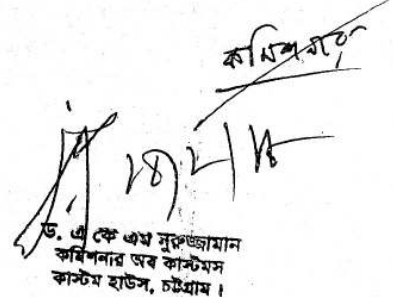 কমিশনার
ড. এ কে এম নুরুজ্জামান
কমিশনার অব কাস্টমস
কাস্টম হাউস, চট্টগ্রাম।